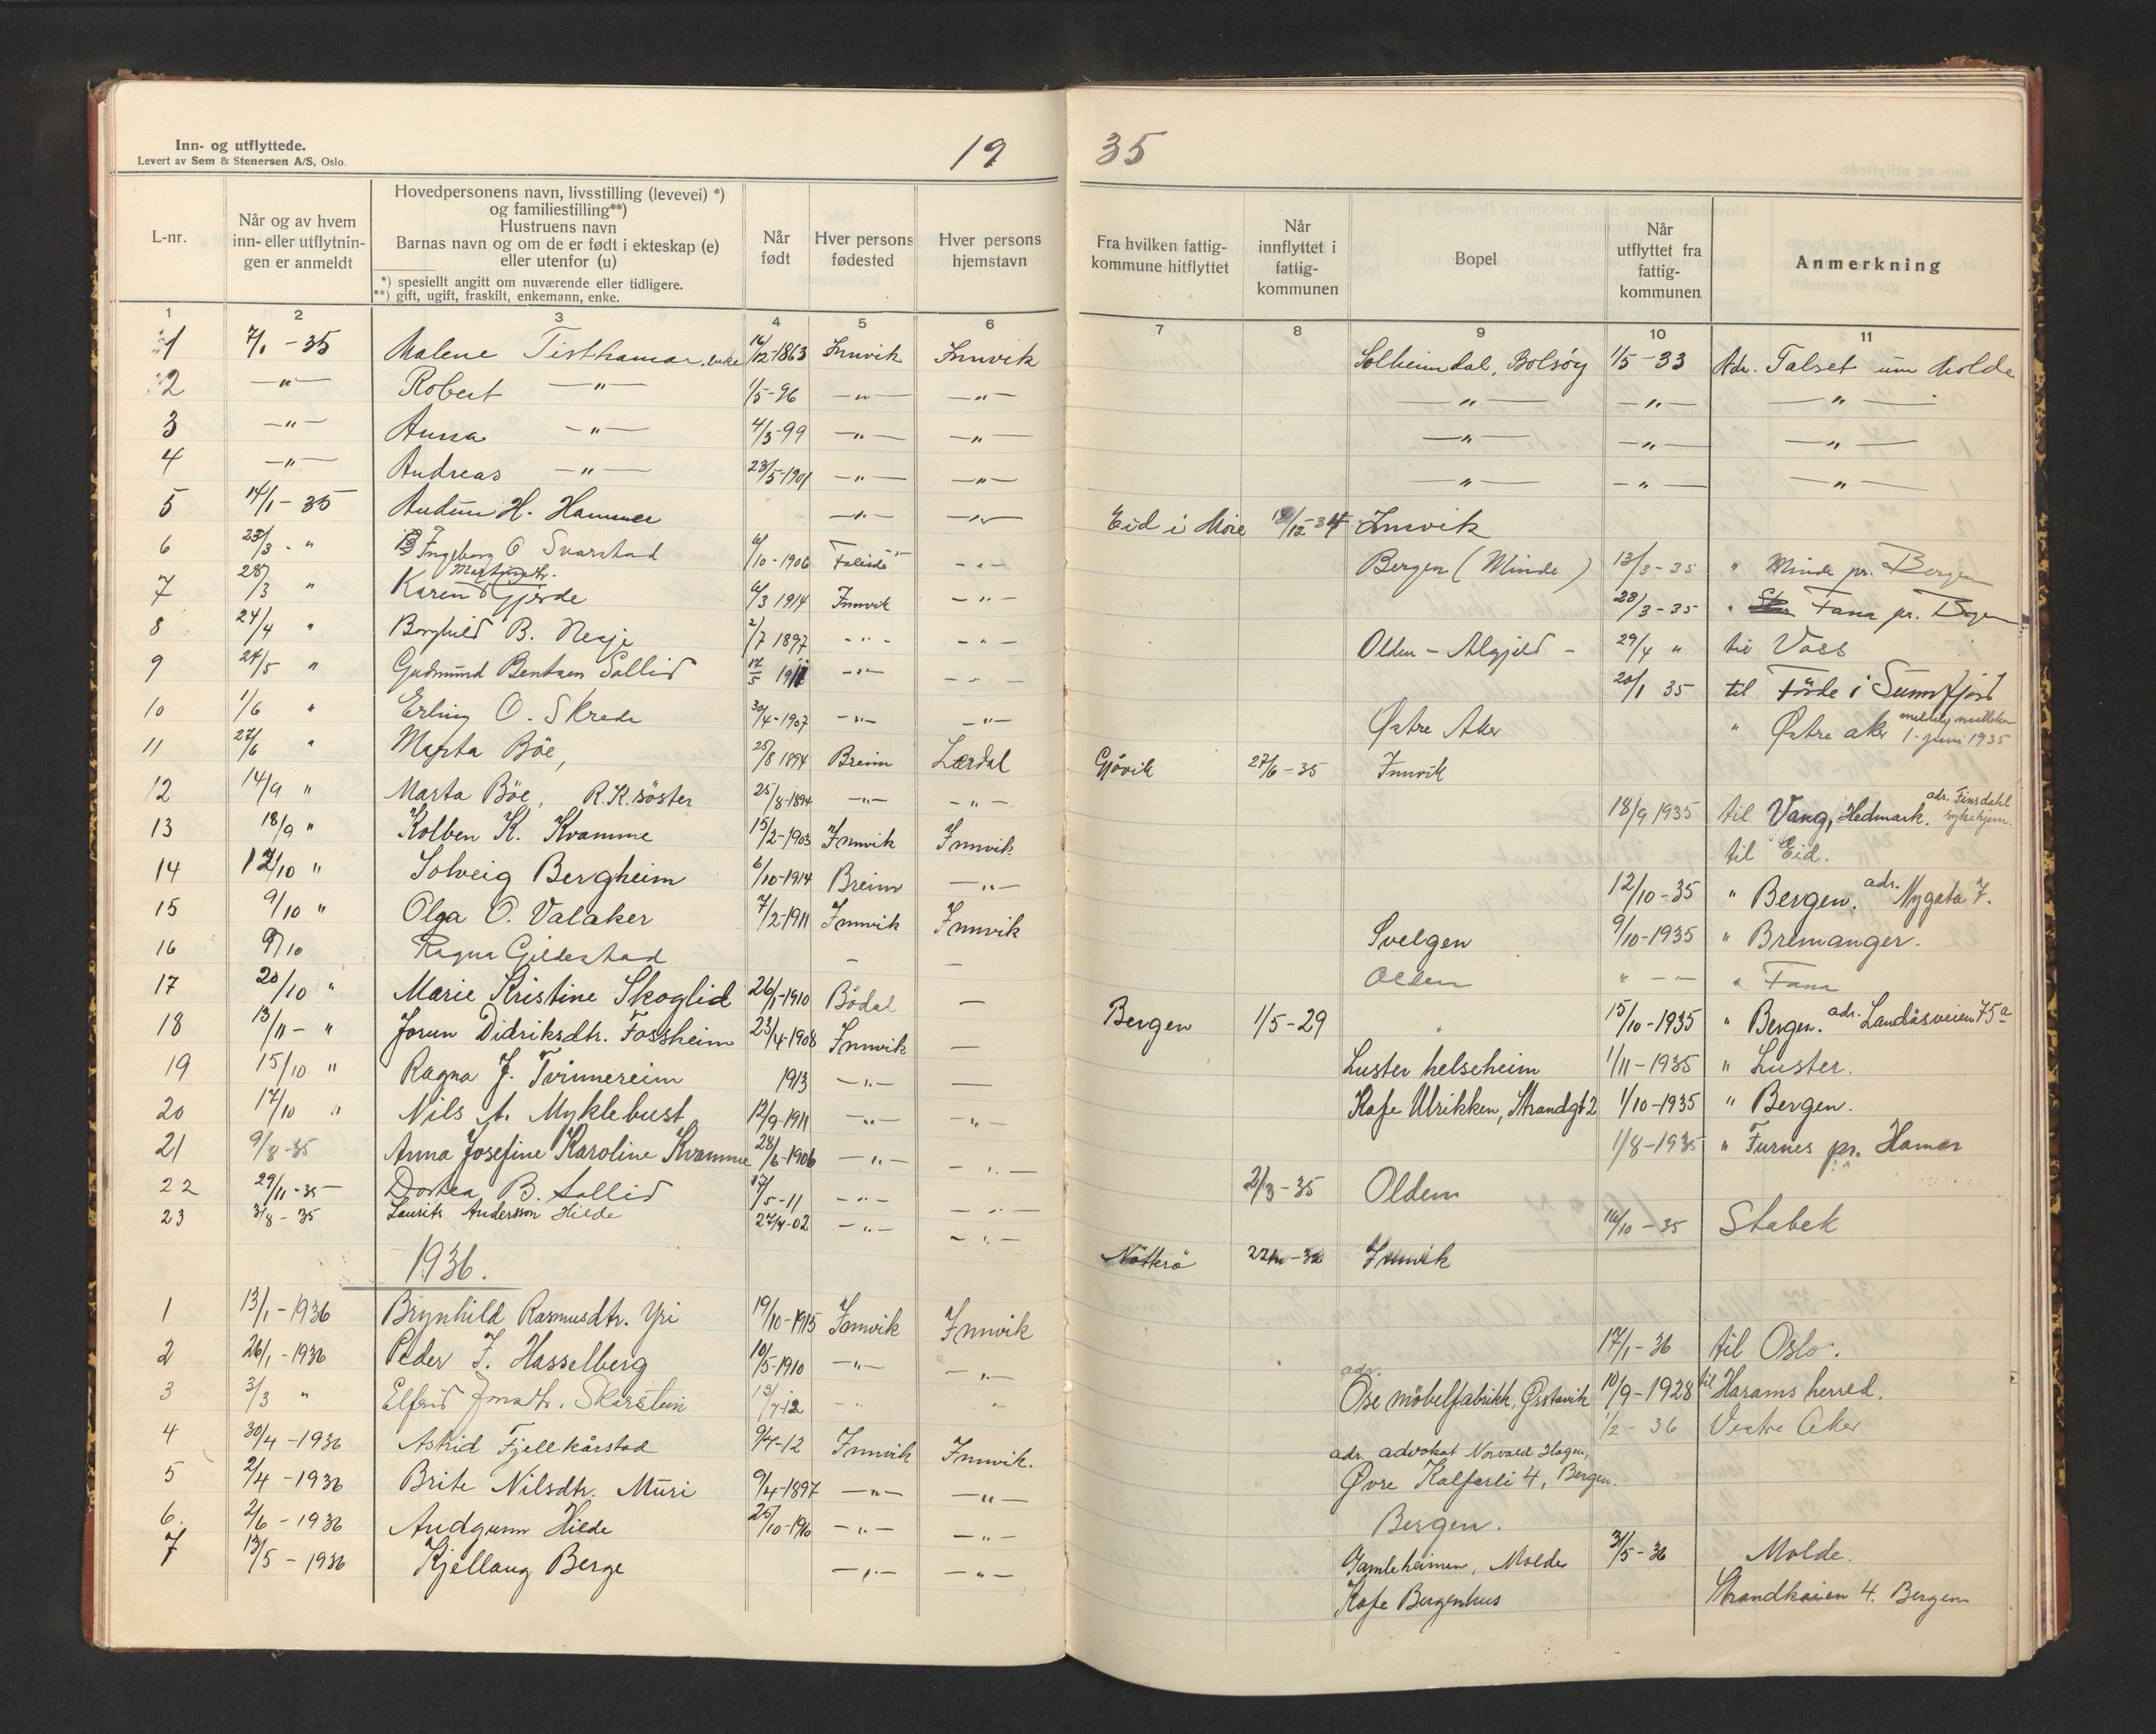 Inn- og utflyttede.
Levert av Sem & Stenersen A/S, Oslo.
19 35
L-nr.
Når og av hvem
inn- eller utflytnin-
gen er anmeldt
Hovedpersonens navn, livsstilling (levevei) *)
og familiestilling**)
Hustruens navn
Barnas navn og om de er født i ekteskap (e)
eller utenfor (u)
*) spesiellt angitt om nuværende eller tidligere.
**) gift, ugift, fraskilt, enkemann, enke.
Når
født
Hver persons
fødested
Hver persons
hjemstavn
Fra hvilken fattig-
kommune hitflyttet
Når
innflyttet i
fattig-
kommunen
Bopel
Når
utflyttet fra
fattig-
kommunen
Anmerkning
1 2 3 4 5 6 7 8 9 10 11
1 7/1 - 35 Malene Tisthamar, enke 16/12-1863 Innvik Innvik Solheimdal, Bolsöy 1/5-33 Adr. Talset um Molde
2 -"- Robert -"- 1/5-96 -"- -"- -"- -"- -"-
3 -"- Anna -"- 4/3-99 -"- -"- -"- -"- -"-
4 -"- Andreas -"- 23/5-1901 -"- -"- -"- -"- -"-
5 14/1 - 35 Audun H. Hammer -"- -"- Eid i Möre /12-34 Innvik
6 /3 - " Ingeborg O Svarstad 6/10-1906 Faleide -"- Bergen (Minde) 13/3-35 " Minde pr. Bergen
7 28/3 " Karen Martinsdtr. Gjerde 6/3 1914 Innvik -"- 28/3-35 " Fana pr. Bergen
8 24/4 " Borghild B. Nesje 2/7 1897 -"- -"- Olden - Algjeld - 29/4 " til Voss
9 24/5 " Gudmund Bentsen Sollid 17/5 -"- -"- 20/1 35 til Förde i Sunnfjord
10 1/6 " Erling O. Skrede 30/4-1907 -"- -"- Østre Aker " Østre aker 1. juni 1935
11 27/6 " Marta Böe, 25/8 1894 Breim Lærdal Gjövik 27/6-35 Innvik
12 14/9 " Marta Böe, R.K.söster 25/8-1894 -"- -"- 18/9 1935 til Vang, Hedmark. adr. Finsdahl sykehjem.
13 18/9 " Kolben K. Kvamme 15/2-1903 Innvik Innvik til Eid.
14 12/10 " Solveig Bergheim 6/10-1914 Breim -"- 12/10-35 " Bergen. adr. Nygata 7.
15 9/10 " Olga O. Valaker 7/2-1911 Innvik Innvik Svelgen 9/10-1935 " Bremanger.
16 9/10 Ragna Gjildestad - - Olden " - " - " Fana
17 20/10 " Marie Kristine Skoglid 26/1-1910 Bödal - Bergen 1/5-29 15/10-1935 " Bergen. adr. Landåsveien 75 a
18 13/11 - " Jorun Didriksdtr. Fossheim 23/4-1908 Innvik - Luster helseheim 1/11-1935 " Luster.
19 15/10 " Ragna J. Tvinnereim 1913 -"- - Kafe Ulrikken, Strandgt 2 1/10-1935 " Bergen.
20 17/10 " Nils A. Myklebust 12/9-1911 -"- -"- 1/8-1935 " Furnes pr. Hamar
21 9/8-35 Anna Josefine Karoline Kvamme 28/6-1906 -"- -"- 21/3-35 Olden
22 29/11-35 Dortea B. Sollid 17/5-11 -"- -"- 16/10-35 Stabek
23 3/8-35 Laurits Andersson Hilde 27/4-02 -"- -"- Nötterö Innvik
1936.
1 13/1-1936 Brynhild Rasmusdtr. Yri 19/10-1915 Innvik Innvik 17/1-36 til Oslo.
2 26/1-1936 Peder J. Hasselberg 10/5-1910 -"- -"- adr. Ose möbelfabrikk, Ørstavik 10/9-1928 til Harams herred.
3 3/3 " Elfrid Skarstein -"- " 1/2-36 Vestre Aker
4 30/4-1936 Astrid Fjellkårstad 9/4-12 Innvik Innvik. adr. advokat Norvald Hagen,
Øvre Kalfarli 4, Bergen.
5 2/4-1936 Brite Nilsdtr. Muri 9/4-1897 -"- -"- Bergen.
6. 2/6-1936 Audgunn Hilde 25/10-1910 -"- -"- Gamleheimen, Molde 31/5-36 Molde.
7 13/5-1936 Kjellaug Berge -"- -"- Kafe Bergenhus Strandkaien 4. Bergen